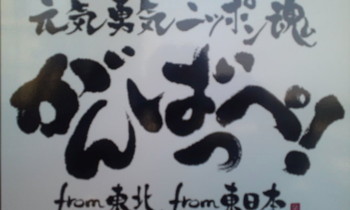 元気勇気ニッポン魂
がんばっぺ!
from東北 from東日本